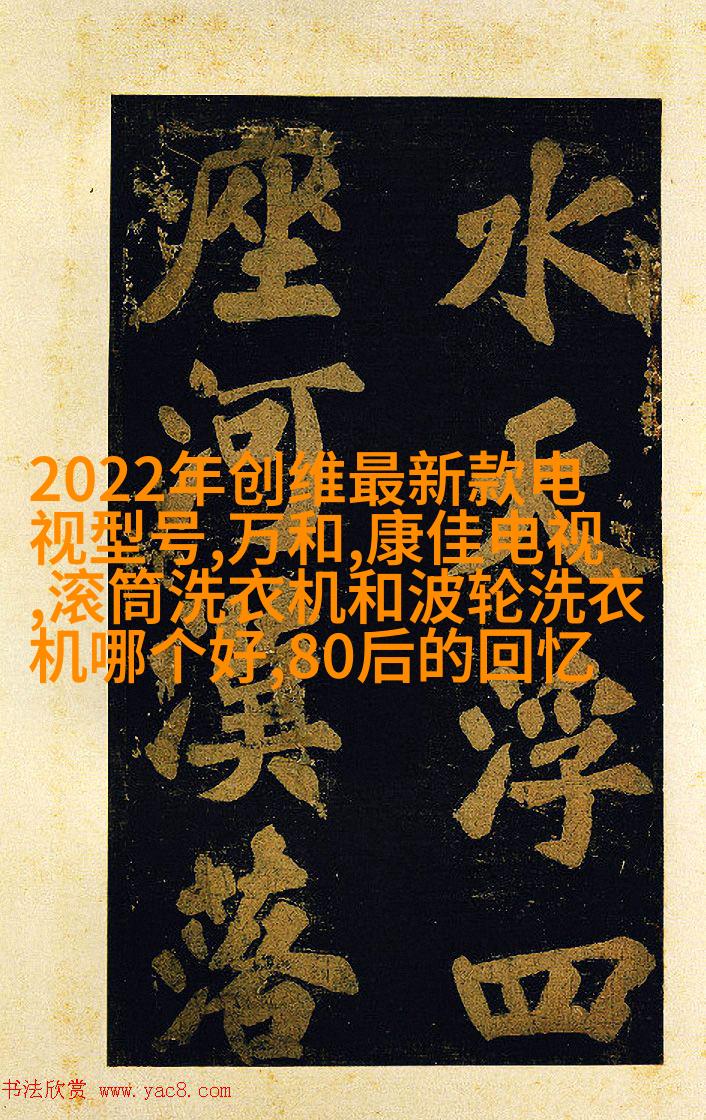 水天浮四
座河漢落
2022年创维最新款电
视型号,万和,康佳电视
,滚筒洗衣机和波轮洗衣
机哪个好,80后的回忆
书法欣赏 www.yac8.com